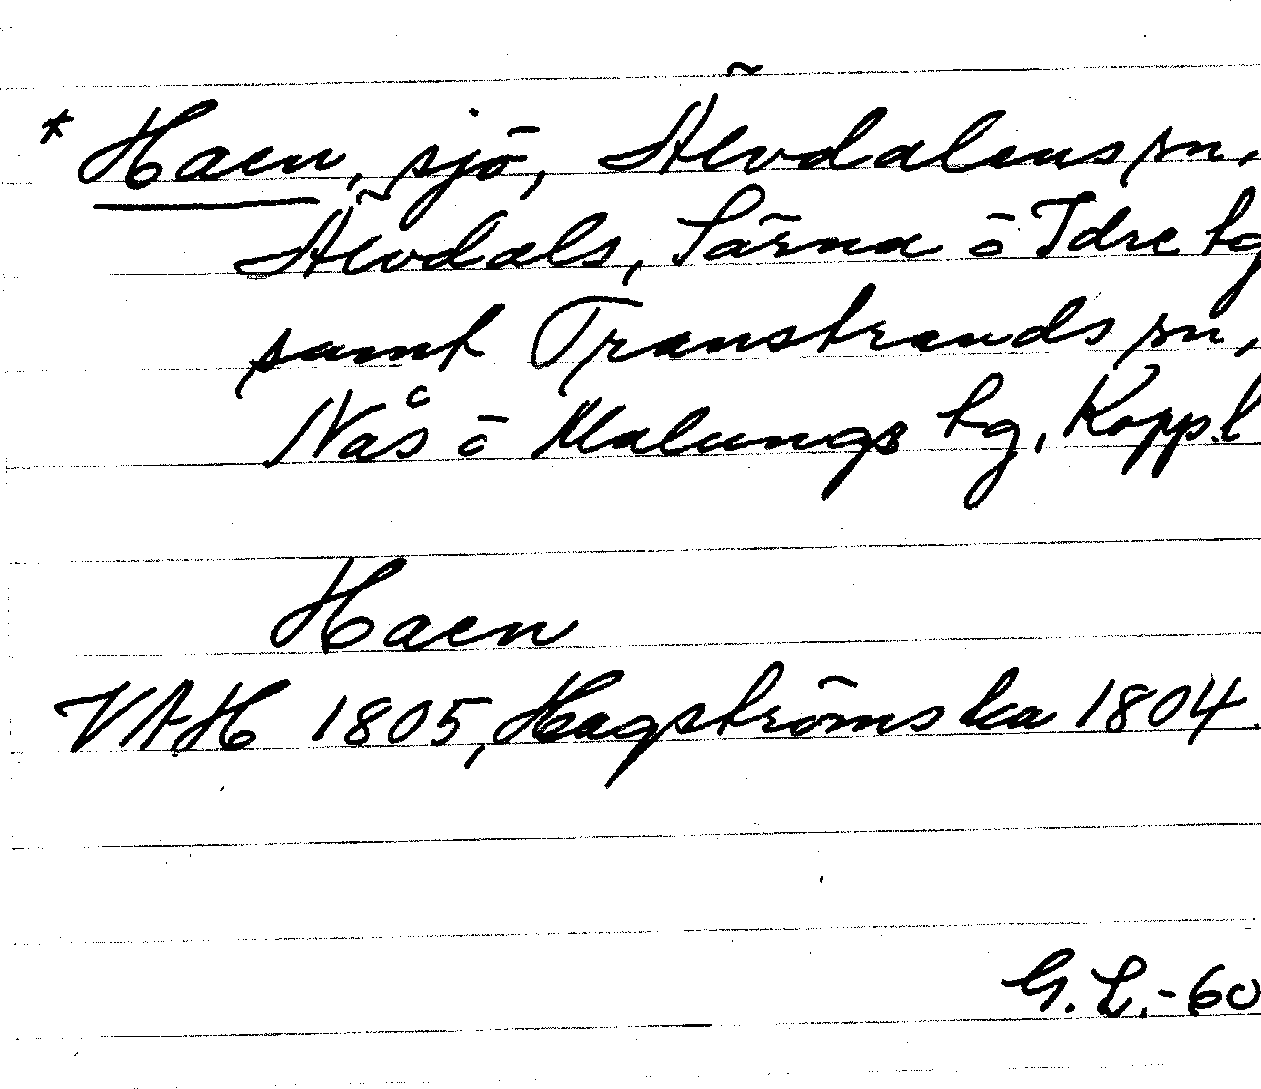 * Haen, sjö, Älvdalens sn,
Älvdals, Särna o Idre tg
samt Transtrands sn,
Nås o Malungs tg, Koppl
Haen
VAH 1805, Hagströmska 1804.
G. L. - 60